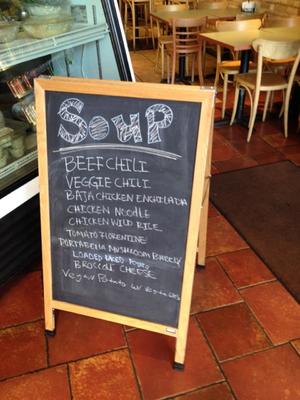 SOUP
BEEF CHILI
VEGGIE CHILI
BAJA CHICKEN ENCHILADA
CHICKEN NOODLE
CHICKEN WILD RICE
TOMATO FLORENTINE
PORTABELLA MUSHROOM BARLEY
LOADED BAKED POTATO
BROCCOLI CHEESE
Vegan Potato w/ vegetables